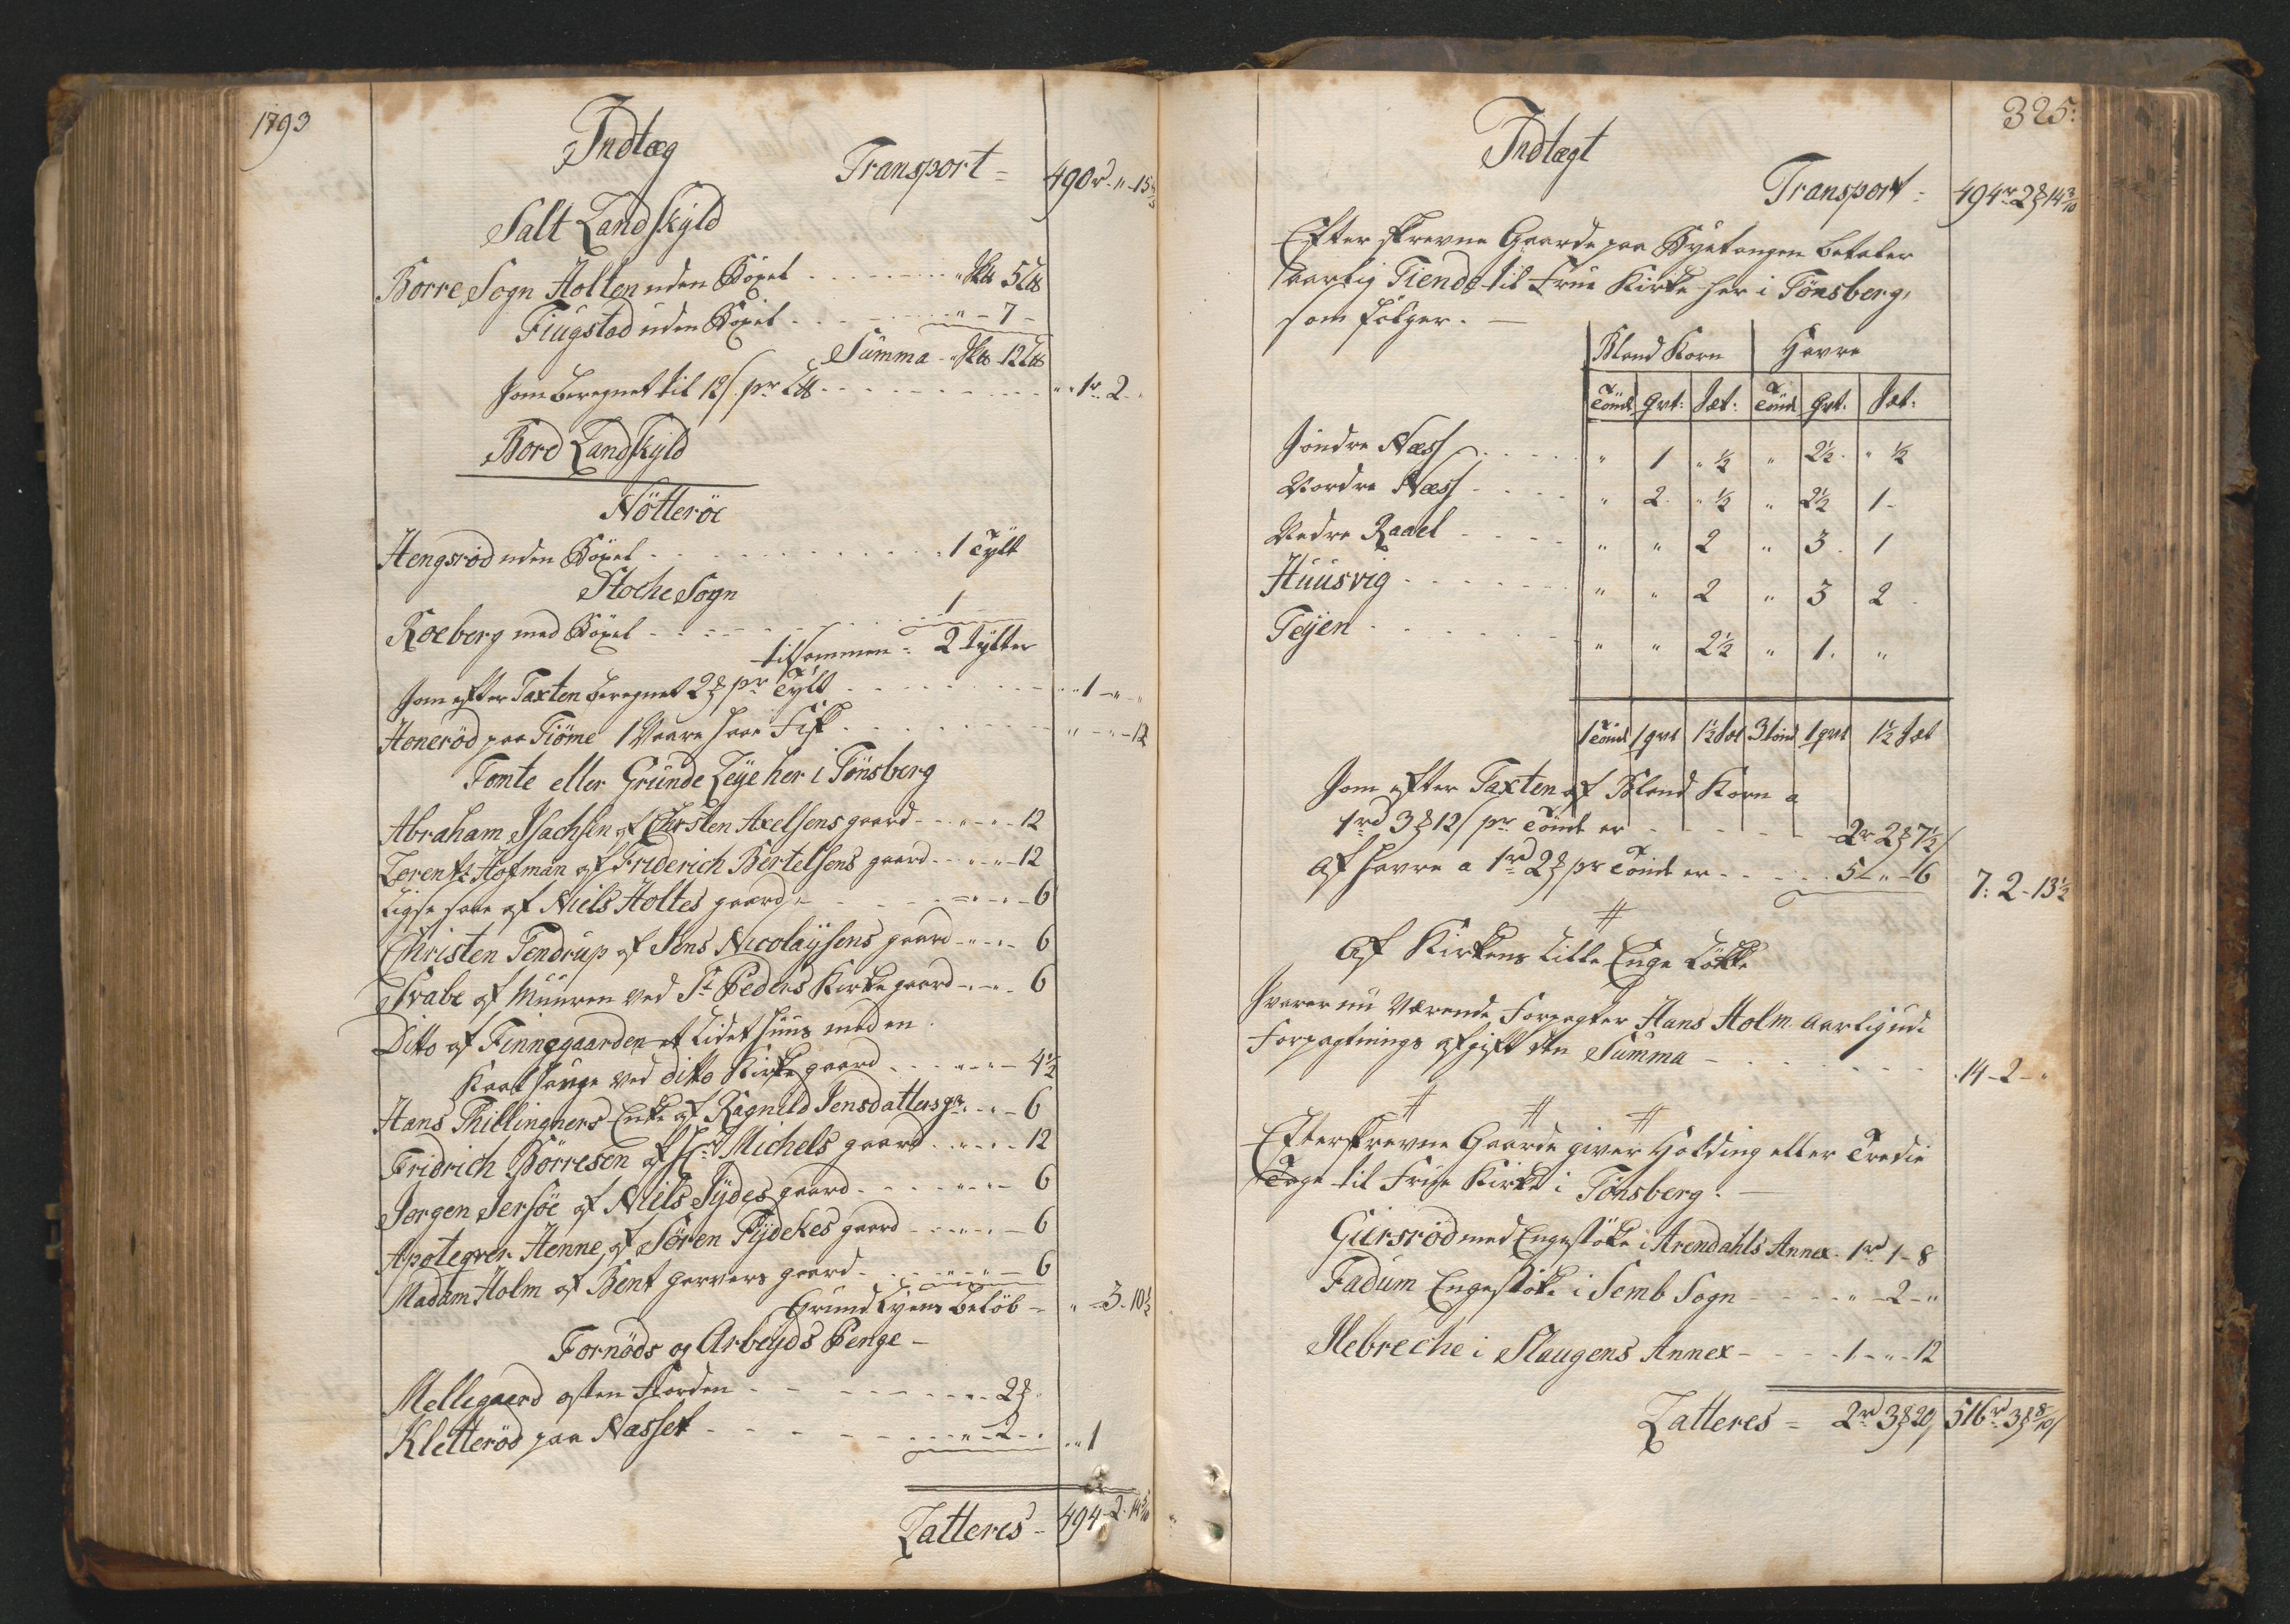 1793
Indtæg
Transport = 490r " 15
Salt Landskyld
Borre Sogn Holten uden Böxel " 5
Fiugstad uden Böxel " - 7 -
Summa 12
som beregnet til 12 s. pr " 1r 2 "
Bord Landskyld
Nötteröe
Hengsröd uden Böxel 1 Tylt
Stoche Sogn
Roeberg med Böxel 1
tilsammen = 2 tylter
som efter Taxten beregnet 2 pr Tylt " 1 - "
Honeröd paa Tiöme 1 Fisk " - " - 12
Tomte eller Grunde Leye her i Tönsberg
Abraham Isachsen af Chrsten Axelsens gaard - " - 12
Lorents Hofman af Friderich Bertelsens gaard - " - 12
Ligesaa af Niels Holtes gaard - " - 6
Christen Tendrup af Jens Nicolaysens gaard - " - 6
Strabe af Muuren ved St Peders Kirke gaard - " - 6
Ditto af Finnegaarden et Lidet huus med en
Kaal hauge ved ditto Kirke gaard - " - 4½
Hans Thillingners Enke af Ragnild Jensdatters gr " - 6
Fridrich Börresen af Hr Michels gaard - " - 12
Jörgen Jersöe af Niels Sydes gaard - " - 6
Apoteqver Henne, af Sören Fydekes gaard - " - 6
Madam Holm af Bent garvers gaard - " - 6
Grund Leyens Belöb - " - 3 - 10½
Fornöds og Arbeyds Penge -
Mellegaard östen Fiorden 2
Kletteröd paa Nesset " - 2 - " " 1
Latteres - 494 - 2 - 14
325:
Indtægt
Transport = 494r 2 14 3/10
Efter skrevne Gaarde paa betaler
aarlig Tiende til Frue Kirke her i Tönsberg,
som fölger. -
Bland Korn Havre
Tönd qvt: Sæt: Tönd qvt. Sæt:
Söndre Næss " 1 " ½ " 2½ " ½
Nordre Næss " 2 " ½ " 2½ 1 -
Nedre Raael " " 2 " 3 1
Huusvig " " 2 " 3 2
Teyen " " 2½ " 1 "
1 Tönd 1 qvt 1½ Sæt 3 tönd 1 qvt 1½ Sæt
Som efter Taxten af Bland Korn a
1rd 3 12 s pr Tönde er 2r 2 7½ s
af Havre a 1rd 2 pr Tönde er 5 - " - 6 7: 2 - 13½
Af Kirkens Lille Enge Lökke
svarer nu værende Forpagter Hans Holm aarlig udi
Forpagtnings afgift den Summa 14 - 2 - "
Efterskrevne Gaarde giver Holding eller Tredie
Tage til Frue Kirke i Tönsberg. -
Gursröd med Engestökke i Arendahls Annex - 1rd 1 - 8
Fadum Engestökke i Semb Sogn " - 2 - "
Slebreche i Slaugens Annex 1 - " - 12
Latteres = 2rd 3 20 516rd 3 8/10 s